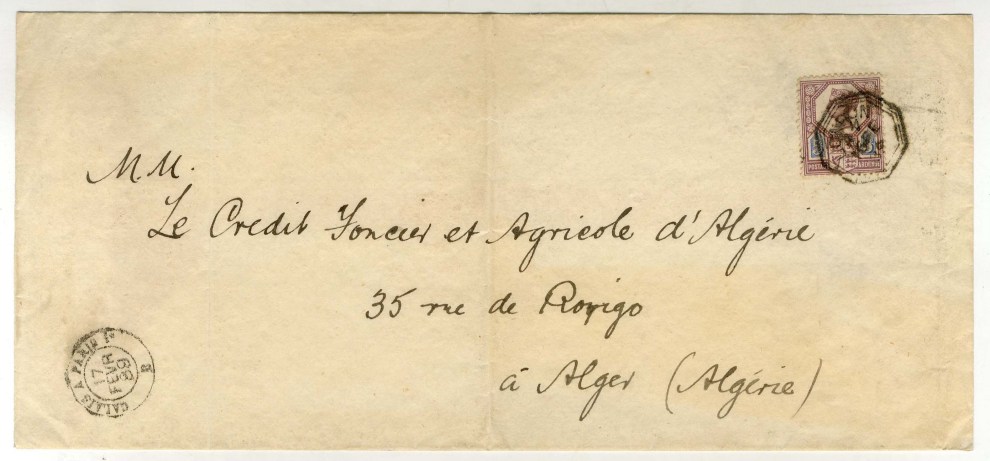 M.M.
Le Credit Foncier et Agricole d'Algérie
35 rue de Rovigo
à Alger (Algérie)
CALAIS A PARIS
17
FEVR
89